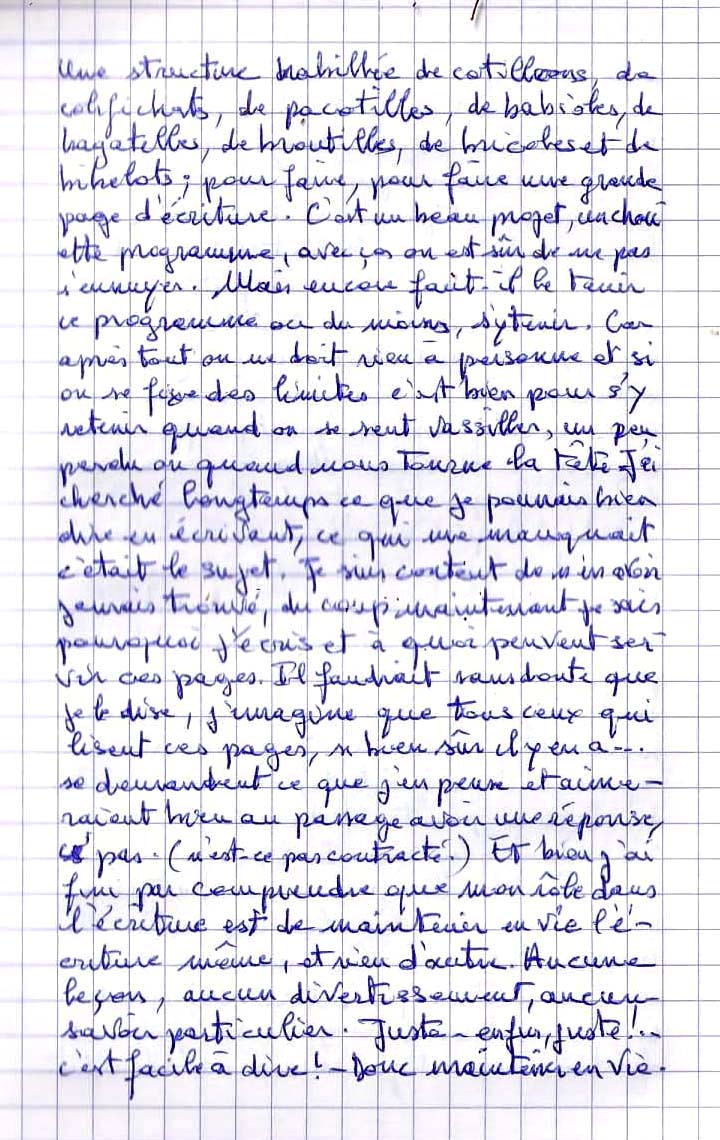 Une structure habillée de cotillons, de
colifichets, de pacotilles, de babioles, de
bagatelles, de broutilles, de bricoles et de
bibelots ; pour faire, pour faire une grande
page d'écriture. C'est un beau projet, un chou
ette programme, avec ça on est sûr de ne pas
s'ennuyer. Mais encore faut-il le tenir
ce programme ou du moins, s'y tenir. Car
après tout on ne doit rien à personne et si
on se fixe des limites c'est bien pour s'y
retenir quand on se sent vassiller, un peu
perdu ou quand nous tourne la tête. J'ai
cherché longtemps ce que je pouvais bien
dire en écrivant, ce qui me manquait
c'était le sujet. Je suis content de n'en avoir
jamais trouvé, du coup maintenant je sais
pourquoi j'écris et à quoi peuvent ser-
vir ces pages. Il faudrait sans doute que
je le dise, j'imagine que tous ceux qui
lisent ces pages, si bien sûr il y en a...
se demandent ce que j'en pense et aime-
raient bien au passage avoir une réponse,
pas. (n'est-ce pas contracté.) Et bien j'ai
fini par comprendre que mon rôle dans
l'écriture est de maintenir en vie l'é-
criture même, et rien d'autre. Aucune
leçon, aucun divertissement, aucun
savoir particulier. Juste - enfin, juste !..
c'est facile à dire ! - Donc maintenir en vie.